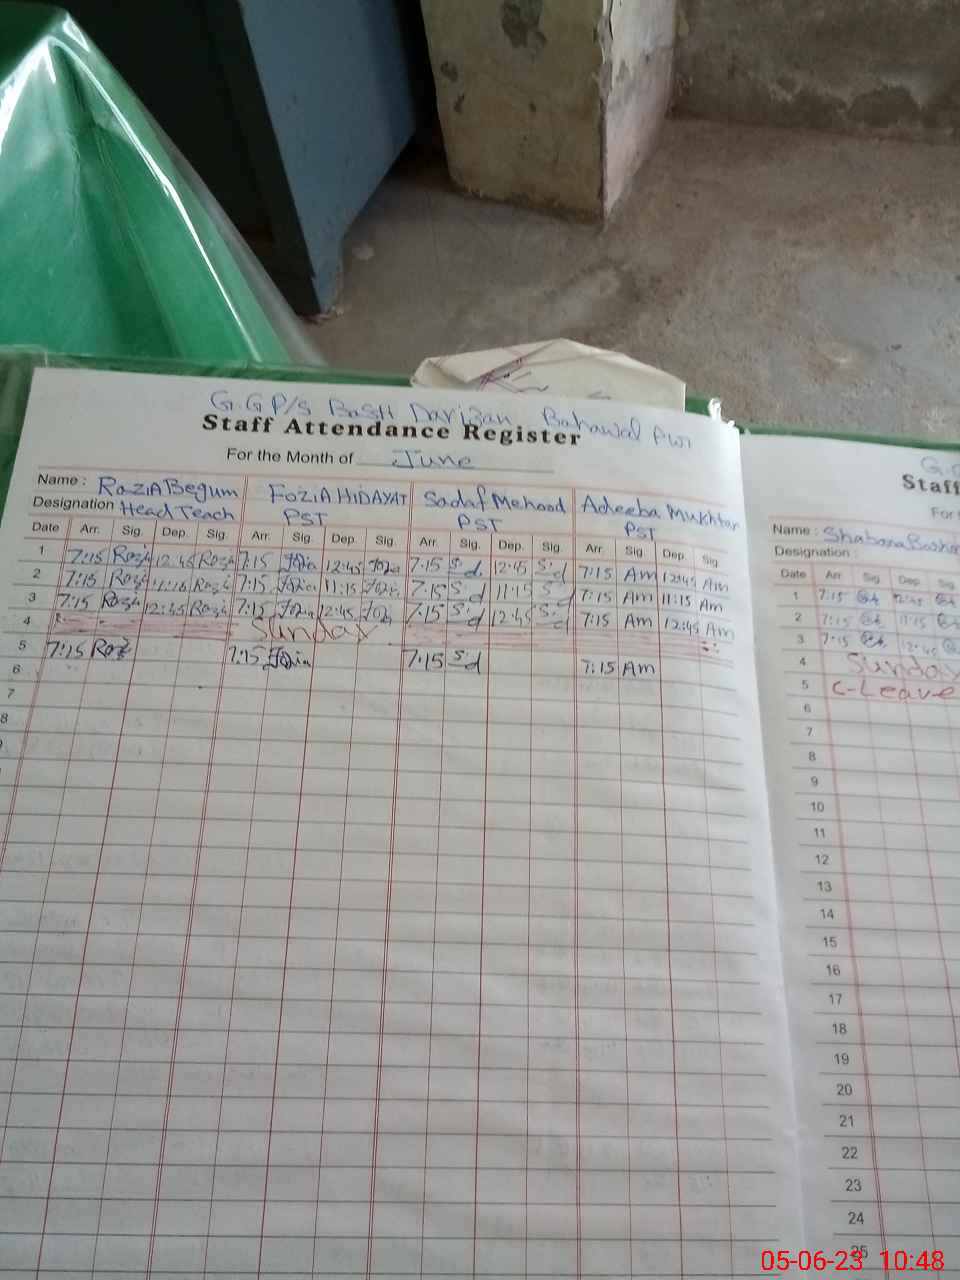 G.G P/S Basti Darizan Bahawal Pur
Staff Attendance Register
For the Month of June
Name : RaziA Begum FoziA HiDAYAT Sadaf Mehood Adeeba Mukhtar
Designation Head Teach PST PST PST
Date Arr. Sig. Dep. Sig. Arr. Sig. Dep. Sig. Arr. Sig. Dep. Sig. Arr. Sig. Dep. Sig.
1 7:15 Rozi 12:45 Rozi 7:15 Fozia 12:45 Fozia 7:15 S.d 12:45 S.d 7:15 Am 12:45 Am
2 7:15 Rozi 11:15 Rozi 7:15 Fozia 11:15 Fozia 7:15 S.d 11:15 S.d 7:15 Am 11:15 Am
3 7:15 Rozi 12:45 Rozi 7:15 Fozia 12:45 Fozia 7:15 S.d 12:45 S.d 7:15 Am 12:45 Am
4 Sunday
5 7:15 Roz 7:15 Fozia 7:15 S.d 7:15 Am
6
7
8
Staff
Name : Shabana
Designation :
Date Arr Sig Dep Sig
1 7:15 12:45
2 7:15 11:15
3 7:15 12:45
4 Sunday
5 C-Leave
6
7
8
9
10
11
12
13
14
15
16
17
18
19
20
21
22
23
24
25
05-06-23 10:48